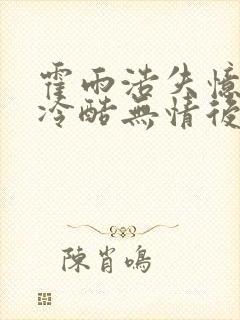 霍雨浩失憶
冷酷無情後
陳肖鳴